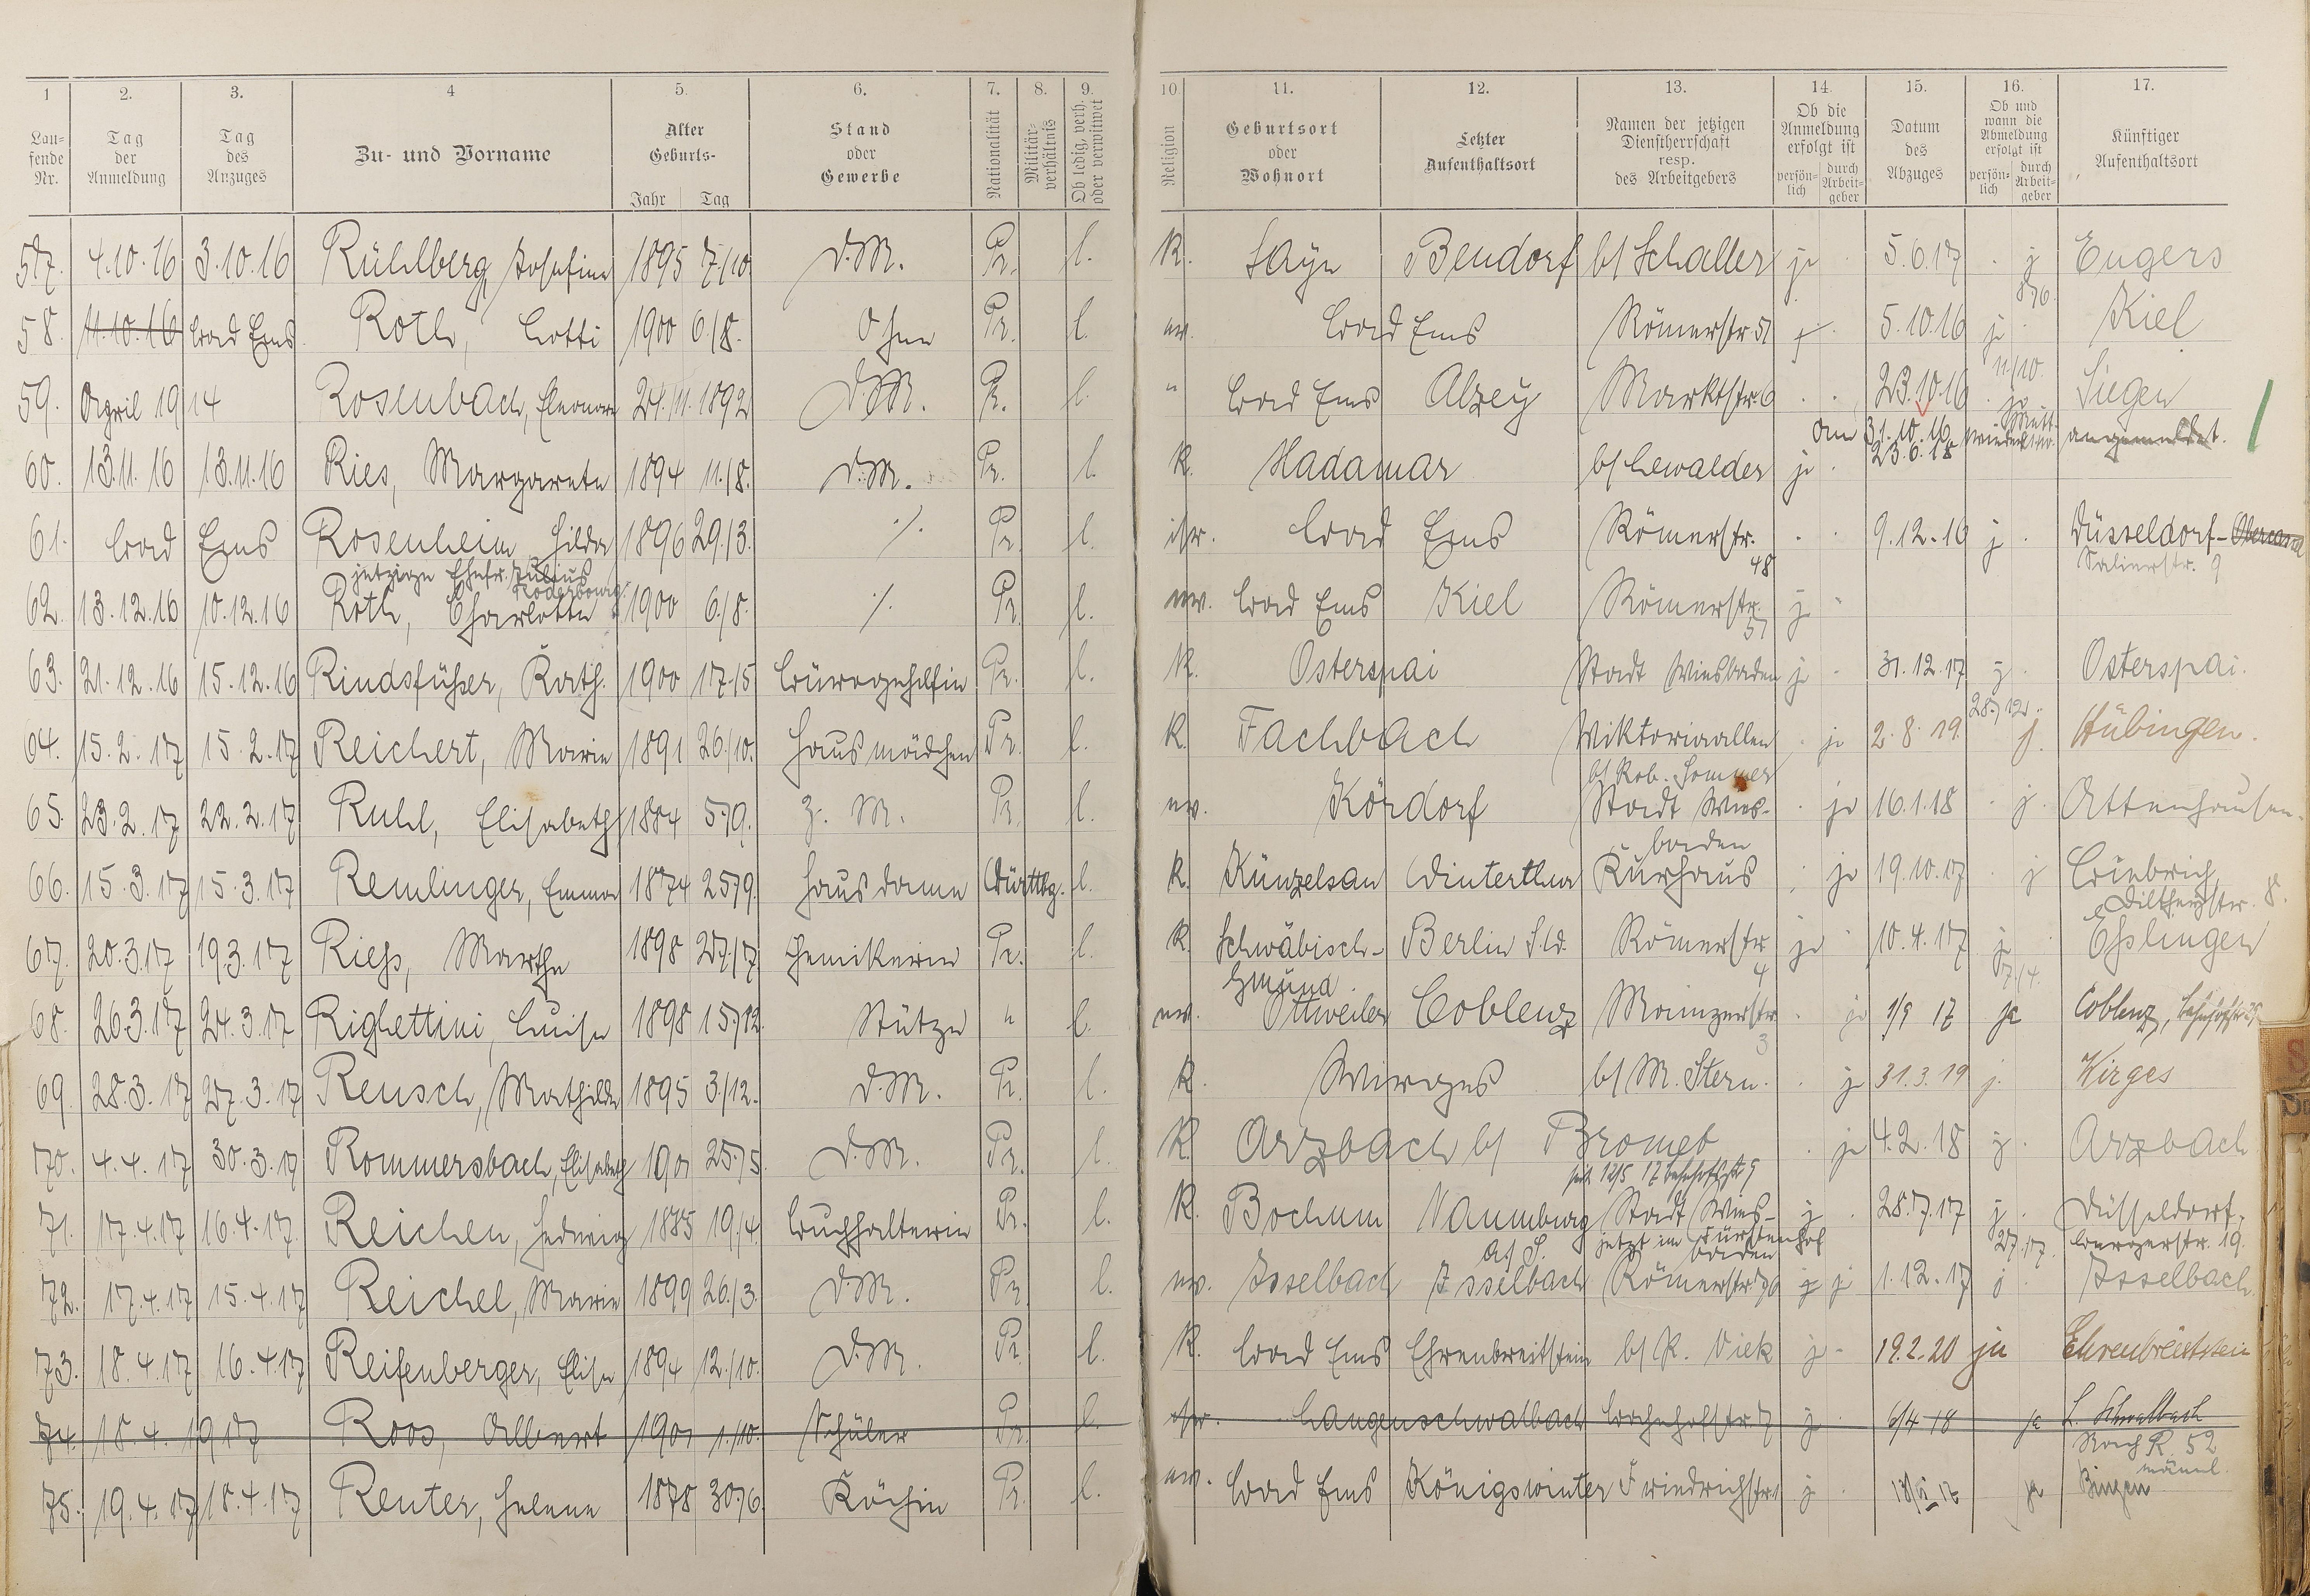 1 2. 3. 4 5. 6. 7. 8. 9. 10. 11. 12. 13. 14. 15. 16. 17.
Laufende Nr. Tag der Anmeldung Tag des Anzuges Zu- und Vorname Alter Geburts- Jahr Tag Stand oder Gewerbe Nationalität Militärverhältnis Ob ledig, verh. oder verwitwet Religion Geburtsort oder Wohnort Letzter Aufenthaltsort Namen der jetzigen Dienstherrschaft resp. des Arbeitgebers Ob die Anmeldung erfolgt ist persönlich durch Arbeitgeber Datum des Abzuges Ob und wann die Abmeldung erfolgt ist persönlich durch Arbeitgeber Künftiger Aufenthaltsort
57. 4.10.16 3.10.16 Rühlberg, Josefine 1895 7./10 D.M. Pr. l. K. Sayn Bendorf b/ Schaller j 5.6.17 j Engers
8./6.
58. 11.10.16 Bad Ems Roth, Lotti 1900 6./8. Ohne Pr. l. ev. Bad Ems Römerstr 51 j 5.10.16 j Kiel
11/10.
59. April 1914 Rosenbach, Eleonore 24./11. 1892 D.M. Pr. l. " Bad Ems Alzey Marktstr. 6 23.10.16 ja Siegen
Am 31.10.16 wieder angemeldet.
60. 13.11.16 13.11.16 Ries, Margarete 1894 11./8. D.M. Pr. l. K. Hadamar b/ Lewalder j 23.6.18
61. Bad Ems Rosenheim, Hilda 1896 29./3. ./. Pr. l. isr. Bad Ems Römerstr. 48 9.12.16 j Düsseldorf-Obercassel
jetzige Ehefr. Julius Salierstr. 9
62. 13.12.16 10.12.16 Roth, Charlotte 1900 6./8. ./. Pr. l. ev. Bad Ems Kiel Römerstr. 51 j
63. 21.12.16 15.12.16 Rindsfüßer, Kath. 1900 17./5 Bürogehilfin Pr. l. K. Osterspai Stadt Wiesbaden j 31.12.17 j Osterspai.
28./12.
64. 15.2.17 15.2.17 Reichert, Marie 1891 26./10. Hausmädchen Pr. l. K. Fachbach Viktoriaallee j 2.8.19. j. Hübingen.
b/ Rob. Sommer
65. 23.2.17 22.2.17 Ruhl, Elisabeth 1884 5./9. Z.M. Pr. l. ev. Kördorf Stadt Wiesbaden ja 16.1.18 j. Attenhausen.
66. 15.3.17 15.3.17 Remlinger, Emma 1874 25./9. Hausdame Württbg. l. K. Künzelsau Winterthur Kurhaus ja 19.10.17 j Biebrich
Diltheystr. 8.
67. 20.3.17 19.3.17 Rieß, Marthe 1898 27./7. Chemikerin Pr. l. K. Schwäbisch-Gmünd Berlin Sld. Römerstr. 4 j 10.4.17 j Eßlingen
7./4.
68. 26.3.17 24.3.17 Righettini, Luise 1898 15./12. Stütze " l. ev. Ottweiler Coblenz Mainzerstr. 3 j 1/9 17 ja Coblenz, Bahnhofstr
69. 28.3.17 27.3.17 Reusch, Mathilde 1895 3./12. D.M. Pr. l. K. Wirges b/ M. Stern. j 31.3.19 j. Wirges
70. 4.4.17 30.3.17 Rommersbach, Elisabeth 1901 25./5. D.M. Pr. l. K Arzbach b/ Bromet j 4.2.18 j. Arzbach
seit 12/5 17 Bahnhofstr 9
71. 17.4.17 16.4.17. Reichen, Hedwig 1885 19./4. Buchhalterin Pr. l. K. Bochum Naumburg a/ S. Stadt Wiesbaden j 28.7.17 j. Düsseldorf,
jetzt im Fürstenhof 27./7.
72. 17.4.17 15.4.17 Reichel, Marie 1899 26./3. D.M. Pr. l. ev. Isselbach Isselbach Römerstr. 96 j j 1.12.17 j Isselbach
73. 18.4.17 16.4.17 Reifenberger, Elise 1894 12./10. D.M. Pr. l. K. Bad Ems Ehrenbreitstein b/ R. Viek j 19.2.20 ja Ehrenbreitstein
74. 18.4.1917 Roos, Albert 1901 1./10. Schüler Pr. l. isr. Langenschwalbach Bahnhofstr 7 j 6/4 18 ja L. Schwalbach
Nach R. 52 männl.
75. 19.4.17 18.4.17 Reuter, Helene 1878 30./6. Köchin Pr. l. ev. Bad Ems Königswinter Friedrichstr. j ja Bingen